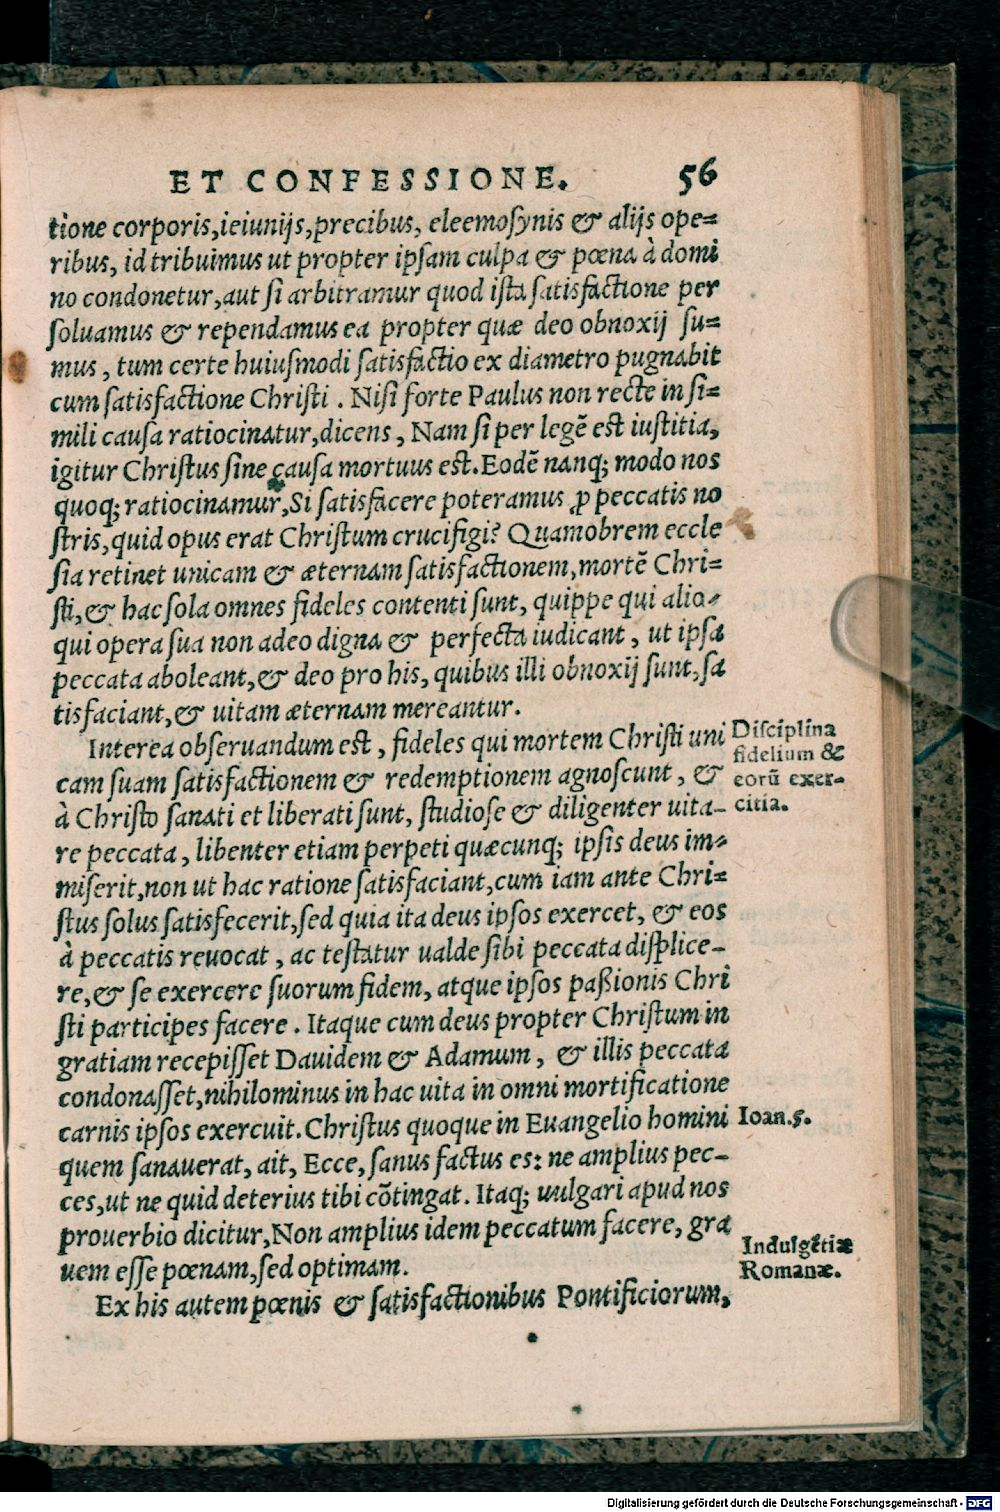 ET CONFESSIONE. 56
tione corporis,ieiunijs,precibus, eleemosynis & alijs ope=
ribus, id tribuimus ut propter ipsam culpa & pœna à domi
no condonetur,aut si arbitramur quod ista satisfactione per
soluamus & rependamus ea propter quæ deo obnoxij su=
mus, tum certe huiusmodi satisfactio ex diametro pugnabit
cum satisfactione Christi. Nisi forte Paulus non recte in si=
mili causa ratiocinatur,dicens, Nam si per legẽ est iustitia,
igitur Christus sine causa mortuus est.Eodẽ nanq; modo nos
quoq; ratiocinamur,Si satisfacere poteramus ꝓ peccatis no
stris,quid opus erat Christum crucifigi? Quamobrem eccle
sia retinet unicam & æternam satisfactionem,mortẽ Chri=
sti,& hac sola omnes fideles contenti sunt, quippe qui alio-
qui opera sua non adeo digna & perfecta iudicant, ut ipsa
peccata aboleant,& deo pro his, quibus illi obnoxij sunt,sa
tisfaciant,& uitam æternam mereantur.
Interea obseruandum est, fideles qui mortem Christi uni
cam suam satisfactionem & redemptionem agnoscunt, &
à Christo sanati et liberati sunt, studiose & diligenter uita-
re peccata, libenter etiam perpeti quæcunq; ipsis deus im-
miserit,non ut hac ratione satisfaciant,cum iam ante Chri=
stus solus satisfecerit,sed quia ita deus ipsos exercet, & eos
à peccatis reuocat, ac testatur ualde sibi peccata displice-
re,& se exercere suorum fidem, atque ipsos paßionis Chri
sti participes facere. Itaque cum deus propter Christum in
gratiam recepisset Dauidem & Adamum, & illis peccata
condonasset,nihilominus in hac uita in omni mortificatione
carnis ipsos exercuit.Christus quoque in Euangelio homini
quem sanauerat, ait, Ecce, sanus factus es: ne amplius pec-
ces,ut ne quid deterius tibi cõtingat. Itaq; uulgari apud nos
prouerbio dicitur,Non amplius idem peccatum facere, gra
uem esse pœnam,sed optimam.
Ex his autem pœnis & satisfactionibus Pontificiorum,
Disciplina
fidelium &
eorũ exer-
citia.
Ioan.5.
Indulgẽtiæ
Romanæ.
Digitalisierung gefördert durch die Deutsche Forschungsgemeinschaft - DFG